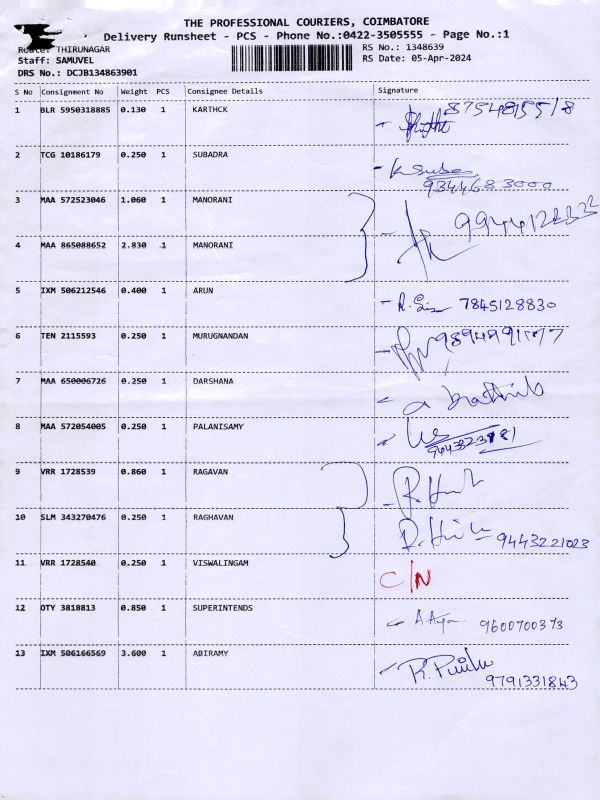 THE PROFESSIONAL COURIERS, COIMBATORE
Delivery Runsheet - PCS - Phone No.:0422-3505555 - Page No.:1
Route: THIRUNAGAR RS No.: 1348639
Staff: SAMUVEL RS Date: 05-Apr-2024
DRS No.: DCJB134863901
S No Consignment No Weight PCS Consignee Details Signature
1 BLR 5950318885 0.130 1 KARTHCK
2 TCG 10186179 0.250 1 SUBADRA K Suba
9344683000
3 MAA 572523046 1.060 1 MANORANI
4 MAA 865088652 2.830 1 MANORANI
5 IXM 506212546 0.400 1 ARUN 7845128830
6 TEN 2115593 0.250 1 MURUGNANDAN
7 MAA 650006726 0.250 1 DARSHANA
8 MAA 572054005 0.250 1 PALANISAMY
9 VRR 1728539 0.860 1 RAGAVAN
10 SLM 343270476 0.250 1 RAGHAVAN 9443221023
11 VRR 1728540 0.250 1 VISWALINGAM C/N
12 OTY 3818813 0.850 1 SUPERINTENDS 9600700373
13 IXM 506166569 3.600 1 ABIRAMY
9791331843